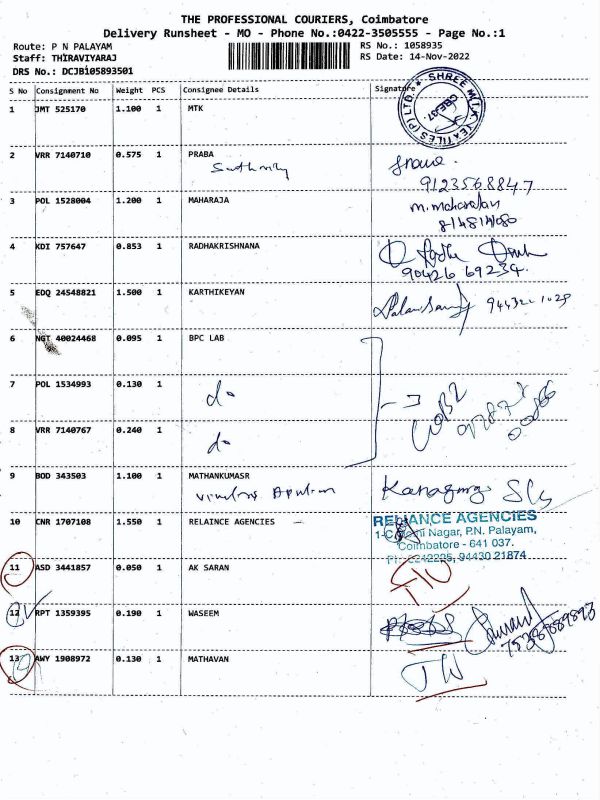 THE PROFESSIONAL COURIERS, Coimbatore
Delivery Runsheet - MO - Phone No.:0422-3505555 - Page No.:1
Route: P N PALAYAM RS No.: 1058935
Staff: THIRAVIYARAJ RS Date: 14-Nov-2022
DRS No.: DCJB105893501
S No Consignment No Weight PCS Consignee Details Signature
1 JMT 525170 1.100 1 MTK
SHREE M.T.K. TEXTILES (P) LTD.
2 VRR 7140710 0.575 1 PRABA
9123568847
3 POL 1528004 1.200 1 MAHARAJA
4 KDI 757647 0.853 1 RADHAKRISHNANA
90426 69234
5 EDQ 24548821 1.500 1 KARTHIKEYAN
6 NGT 40024468 0.095 1 BPC LAB
7 POL 1534993 0.130 1 do
8 VRR 7140767 0.240 1 do
9 BOD 343503 1.100 1 MATHANKUMASR
10 CNR 1707108 1.550 1 RELAINCE AGENCIES
RELIANCE AGENCIES
Nagar, P.N. Palayam,
Coimbatore - 641 037.
94430 21874
11 ASD 3441857 0.050 1 AK SARAN
12 RPT 1359395 0.190 1 WASEEM
13 AWY 1908972 0.130 1 MATHAVAN